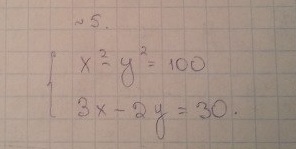 ~5.
x² - y² = 100
3x - 2y = 30.